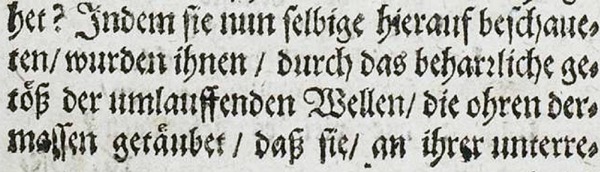 het? Indem sie nun selbige hierauf beschaue⸗
ten/ wurden ihnen / durch das beharꝛliche ge⸗
töß der umlauffenden Wellen/ die ohren der⸗
massen getäubet / daß sie/ an ihrer unterre⸗